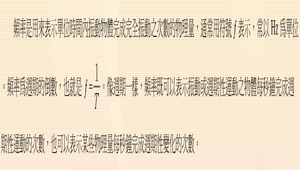 頻率是用來表示單位時間內振動物體完成完全振動之次數的物理量，通常用符號 f 表示，常以 Hz 爲單位
。頻率爲週期的倒數，也就是 f=1/T。像週期一樣，頻率既可以表示振動或週期性運動之物體每秒鐘完成週
期性運動的次數，也可以表示某些物理量每秒鐘完成週期性變化的次數。